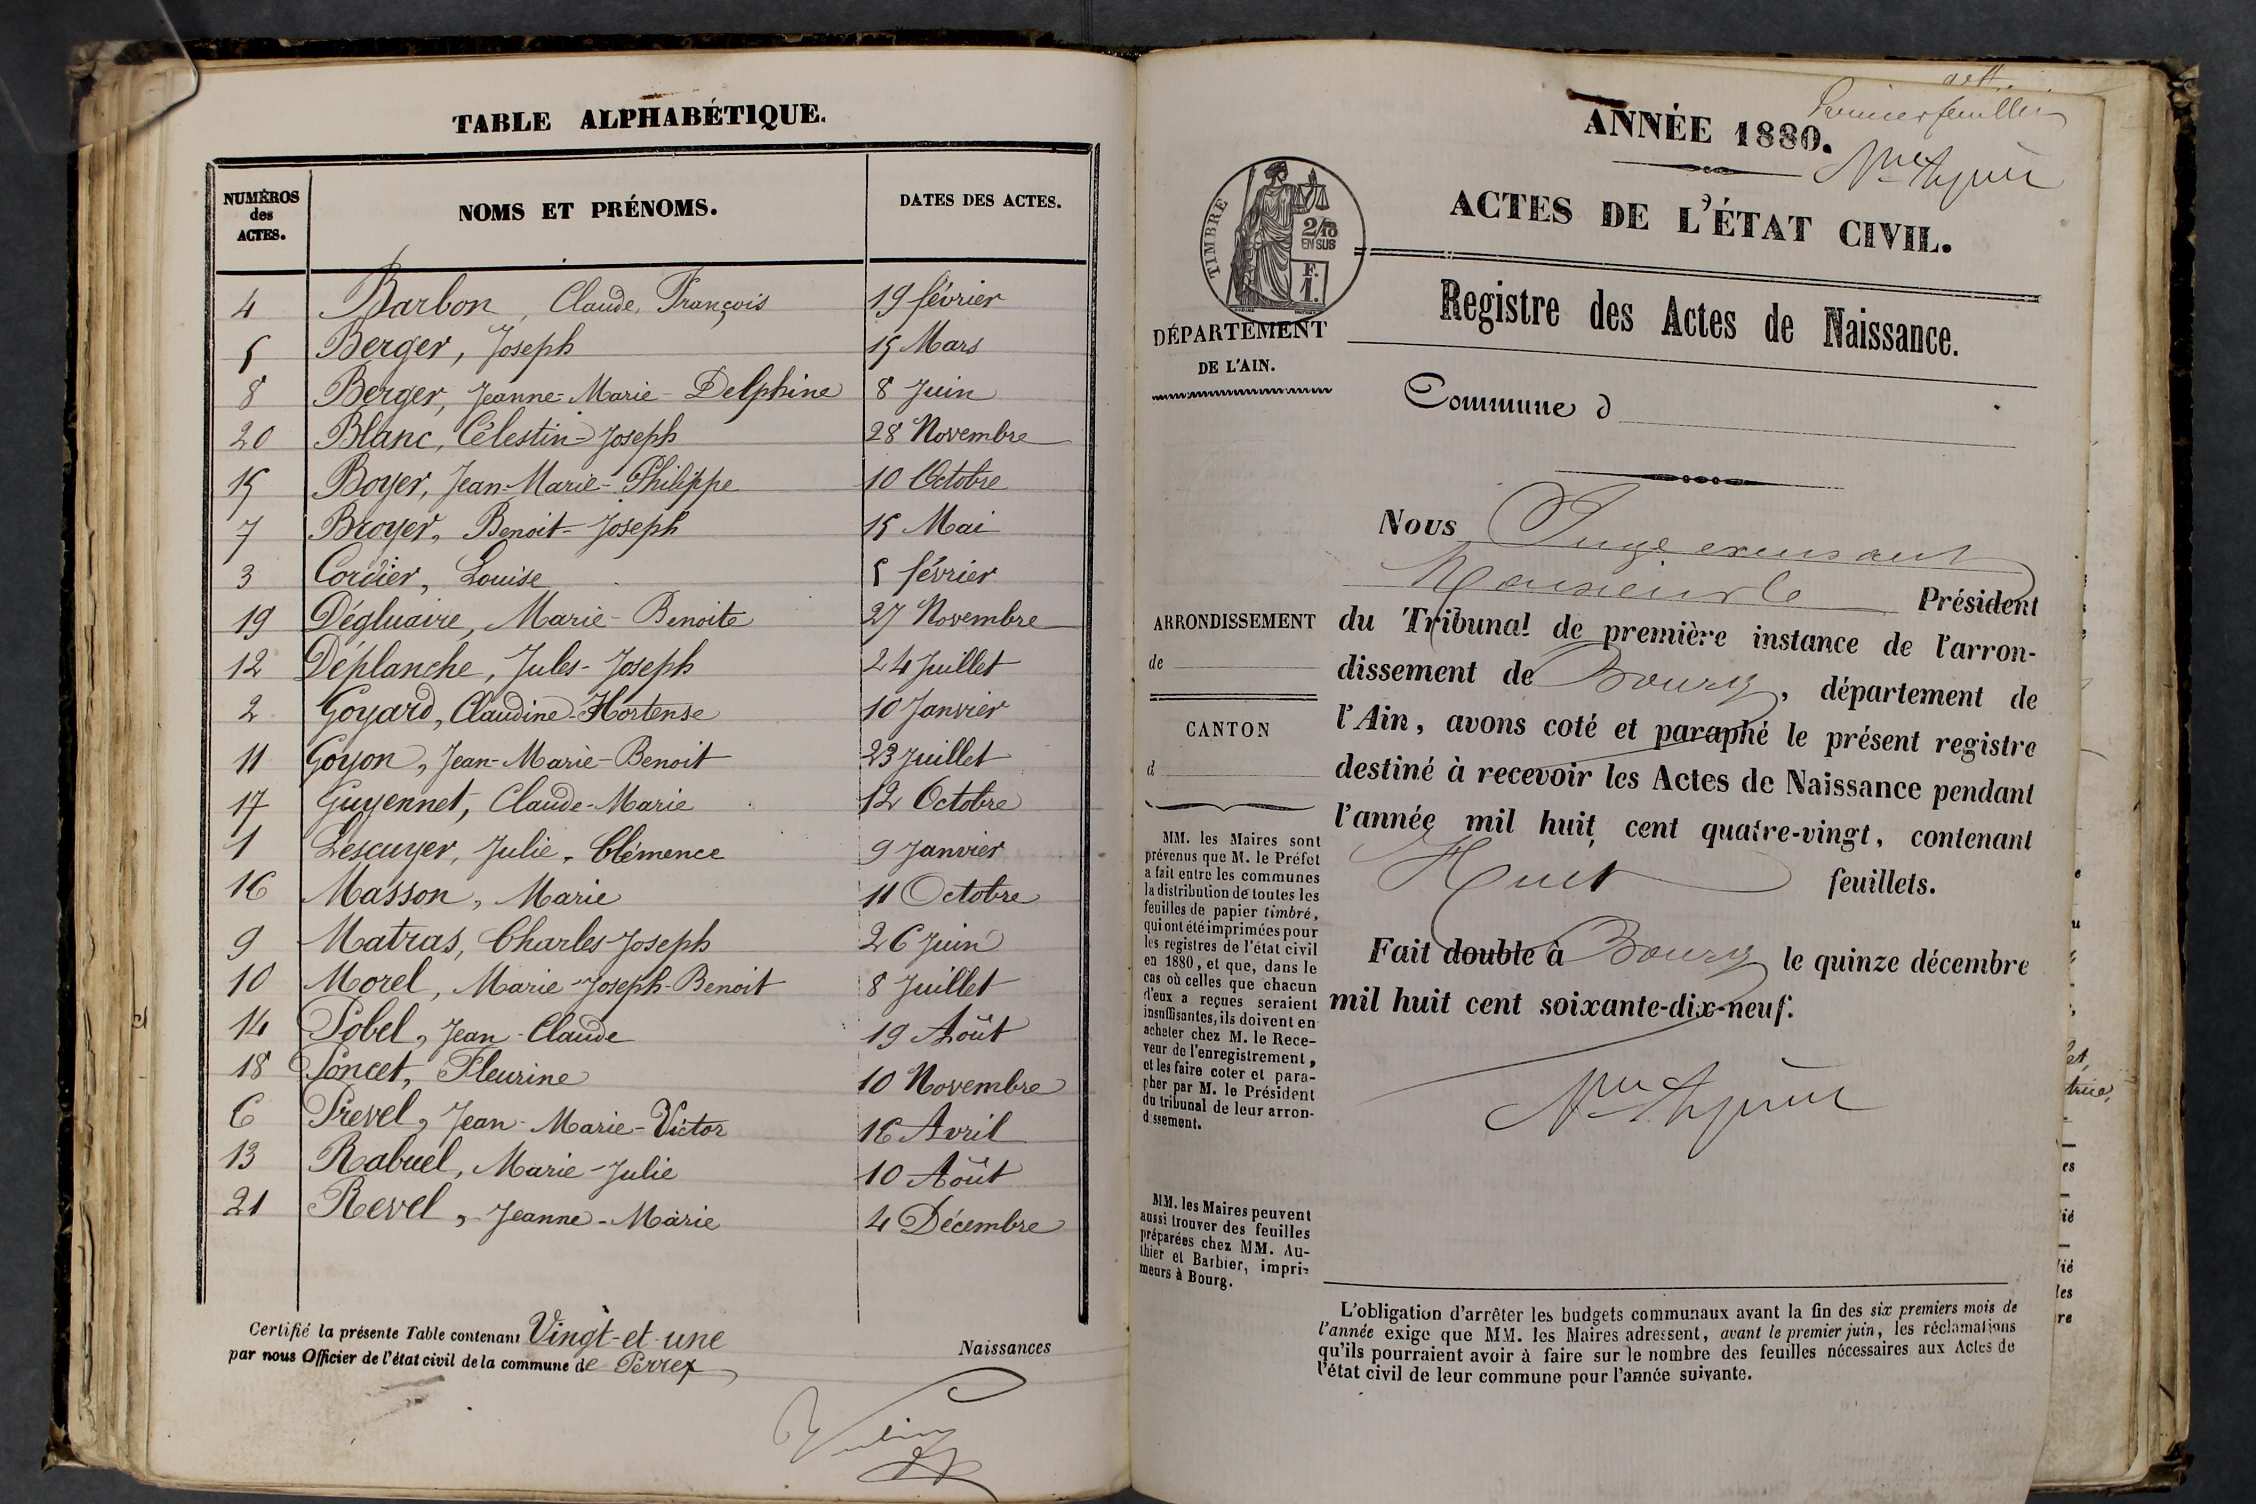 TABLE ALPHABÉTIQUE.
NUMÉROS des ACTES. NOMS ET PRÉNOMS. DATES DES ACTES.
4 Barbon, Claude, François 19 février
5 Berger, Joseph 15 Mars
8 Berger, Jeanne-Marie-Delphine 8 Juin
20 Blanc, Célestin-Joseph 28 Novembre
15 Boyer, Jean-Marie-Philippe 10 Octobre
7 Broyer, Benoit-Joseph 15 Mai
3 Cordier, Louise 5 février
19 Dégluaire, Marie-Benoite 27 Novembre
12 Déplanche, Jules-Joseph 24 Juillet
2 Goyard, Claudine-Hortense 10 Janvier
11 Goyon, Jean-Marie-Benoit 23 Juillet
17 Guyennet, Claude-Marie 12 Octobre
1 Lescuyer, Julie, Clémence 9 Janvier
16 Masson, Marie 11 Octobre
9 Matras, Charles-Joseph 26 Juin
10 Morel, Marie-Joseph-Benoit 8 Juillet
14 Pobel, Jean-Claude 19 Août
18 Poncet, Fleurine 10 Novembre
6 Prevel, Jean-Marie-Victor 16 Avril
13 Rabuel, Marie-Julie 10 Août
21 Revel, Jeanne-Marie 4 Décembre
Certifié la présente Table contenant Vingt-et-une Naissances
par nous Officier de l'état civil de la commune de Perrex
Premier feuillet
ANNÉE 1880.
ACTES DE L'ÉTAT CIVIL.
TIMBRE
2/10
EN SUS
F.
1.
Registre des Actes de Naissance.
DÉPARTEMENT
DE L'AIN.
Commune d
Nous Juge excusant
Monsieur le Président
ARRONDISSEMENT
de
CANTON
d
du Tribunal de première instance de l'arron-
dissement de Bourg, département de
l'Ain, avons coté et paraphé le présent registre
destiné à recevoir les Actes de Naissance pendant
l'année mil huit cent quatre-vingt, contenant
Huit feuillets.
Fait double à Bourg le quinze décembre
mil huit cent soixante-dix-neuf.
MM. les Maires sont
prévenus que M. le Préfet
a fait entre les communes
la distribution de toutes les
feuilles de papier timbré,
qui ont été imprimées pour
les registres de l'état civil
en 1880, et que, dans le
cas où celles que chacun
d'eux a reçues seraient
insuffisantes, ils doivent en
acheter chez M. le Rece-
veur de l'enregistrement,
et les faire coter et para-
pher par M. le Président
du tribunal de leur arron-
d ssement.
MM. les Maires peuvent
aussi trouver des feuilles
préparées chez MM. Au-
thier et Barbier, impri-
meurs à Bourg.
L'obligation d'arrêter les budgets communaux avant la fin des six premiers mois de
l'année exige que MM. les Maires adressent, avant le premier juin, les réclamations
qu'ils pourraient avoir à faire sur le nombre des feuilles nécessaires aux Actes de
l'état civil de leur commune pour l'année suivante.